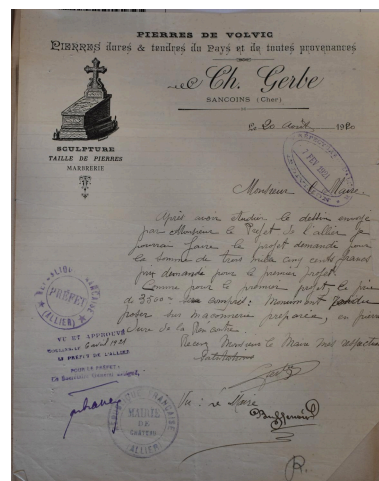 PIERRES DE VOLVIC
PIERRES dures & tendres du Pays et de toutes provenances
Ch. Gerbe
SANCOINS (Cher)
SCULPTURE
TAILLE DE PIERRES
MARBRERIE
le 20 août 1920
Monsieur le Maire
Après avoir étudier le dessin envoyé
par Monsieur le Préfet de l'allier je
pourrai faire le projet demandé pour
la somme de trois mille cinq cents francs
demande pour le premier projet
Comme pour le premier projet, le prix
de 3500 compris: monument
poser sur maçonnerie préparée, en pierre
Recevez Monsieur le Maire mes
salutations
Gerbe
RÉPUBLIQUE FRANÇAISE
PRÉFET
(ALLIER)
VU ET APPROUVÉ
6 avril 1921
LE PRÉFET DE L'ALLIER
POUR LE PRÉFET:
Le Secrétaire Général délégué,
Vu: le Maire
RÉPUBLIQUE FRANÇAISE
MAIRIE
DE
(ALLIER)
R.